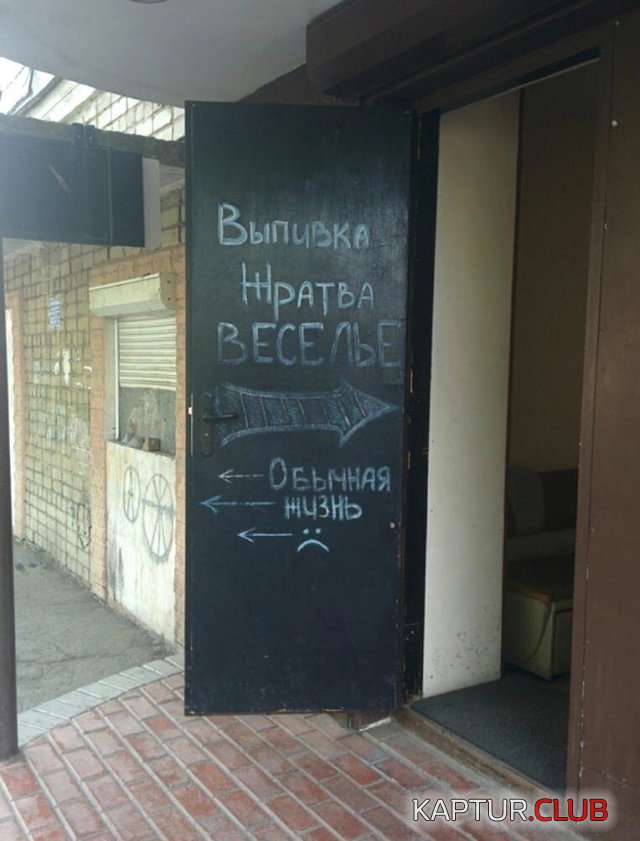 Выпивка
Жратва
ВЕСЕЛЬЕ
Обычная
жизнь
KAPTUR.CLUB